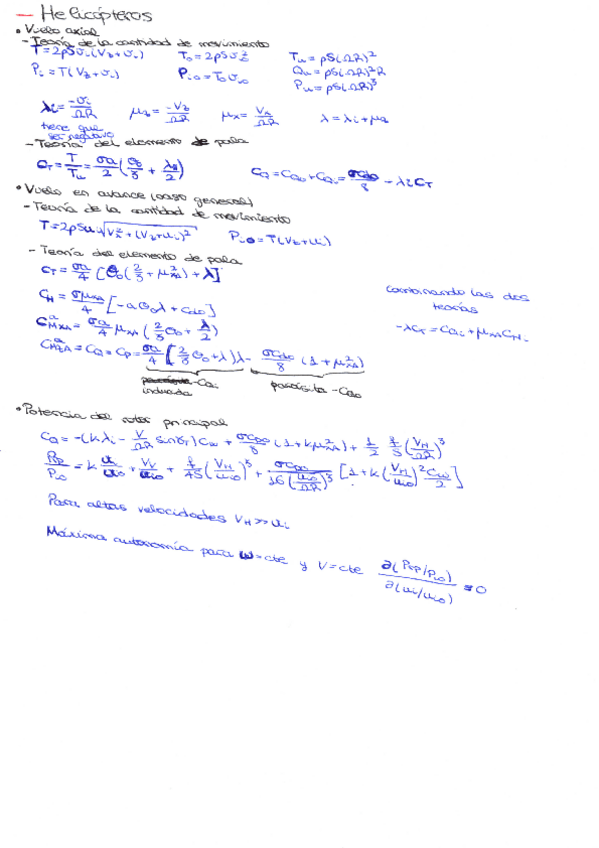 — Helicópteros
• Vuelo axial
- Teoría de la cantidad de movimiento
T=2ρSvᵢ(V_z+vᵢ) T₀=2ρSvᵢ₀² T_u=ρS(ΩR)²
Pᵢ=T(V_z+vᵢ) Pᵢ₀=T₀vᵢ₀ Q_u=ρS(ΩR)²R
P_u=ρS(ΩR)³
λᵢ=-vᵢ/ΩR μ_z=-V_z/ΩR μ_x=V_x/ΩR λ=λᵢ+μ_z
tiene que
ser negativo
- Teoría del elemento de pala
C_T=T/T_u=σa/2(θ₀/3+λ/2) C_Q=C_Q₀+C_Qᵢ=σC_d₀/8-λᵢC_T
• Vuelo en avance (caso general)
- Teoría de la cantidad de movimiento
T=2ρSuᵢ√(V_x²+(V_z+uᵢ)²) Pᵢ₀=T(V_z+uᵢ)
- Teoría del elemento de pala
C_T=σa/4[θ₀(2/3+μ²_xA)+λ]
Combinando las dos
teorías
C_H=σμ_xA/4[-aθ₀λ+C_d₀]
-λC_T=C_Qᵢ+μ_xA C_Hᵢ
σa/4 μ_xA(2/3θ₀+λ/2)
=C_Q=C_P=σa/4[2/3θ₀+λ]λ-σC_d₀/8(1+μ²_xA)
-C_Qᵢ parásita-C_Q₀
inducida
• Potencia del rotor principal
C_Q=-(kλᵢ-V/ΩR sinγ_T)C_w+σC_D₀/8(1+kμ²_xA)+1/2 f/S(V_H/ΩR)³
P_rp/Pᵢ₀=k uᵢ/uᵢ₀+V_V/uᵢ₀+f/4S(V_H/uᵢ₀)³+σC_D₀/16(uᵢ₀/ΩR)³[1+k(V_H/uᵢ₀)²C_w/2]
Para altas velocidades V_H>>uᵢ
Máxima autonomía para W=cte y V=cte ∂(P_rp/Pᵢ₀)/∂(uᵢ/uᵢ₀)=0